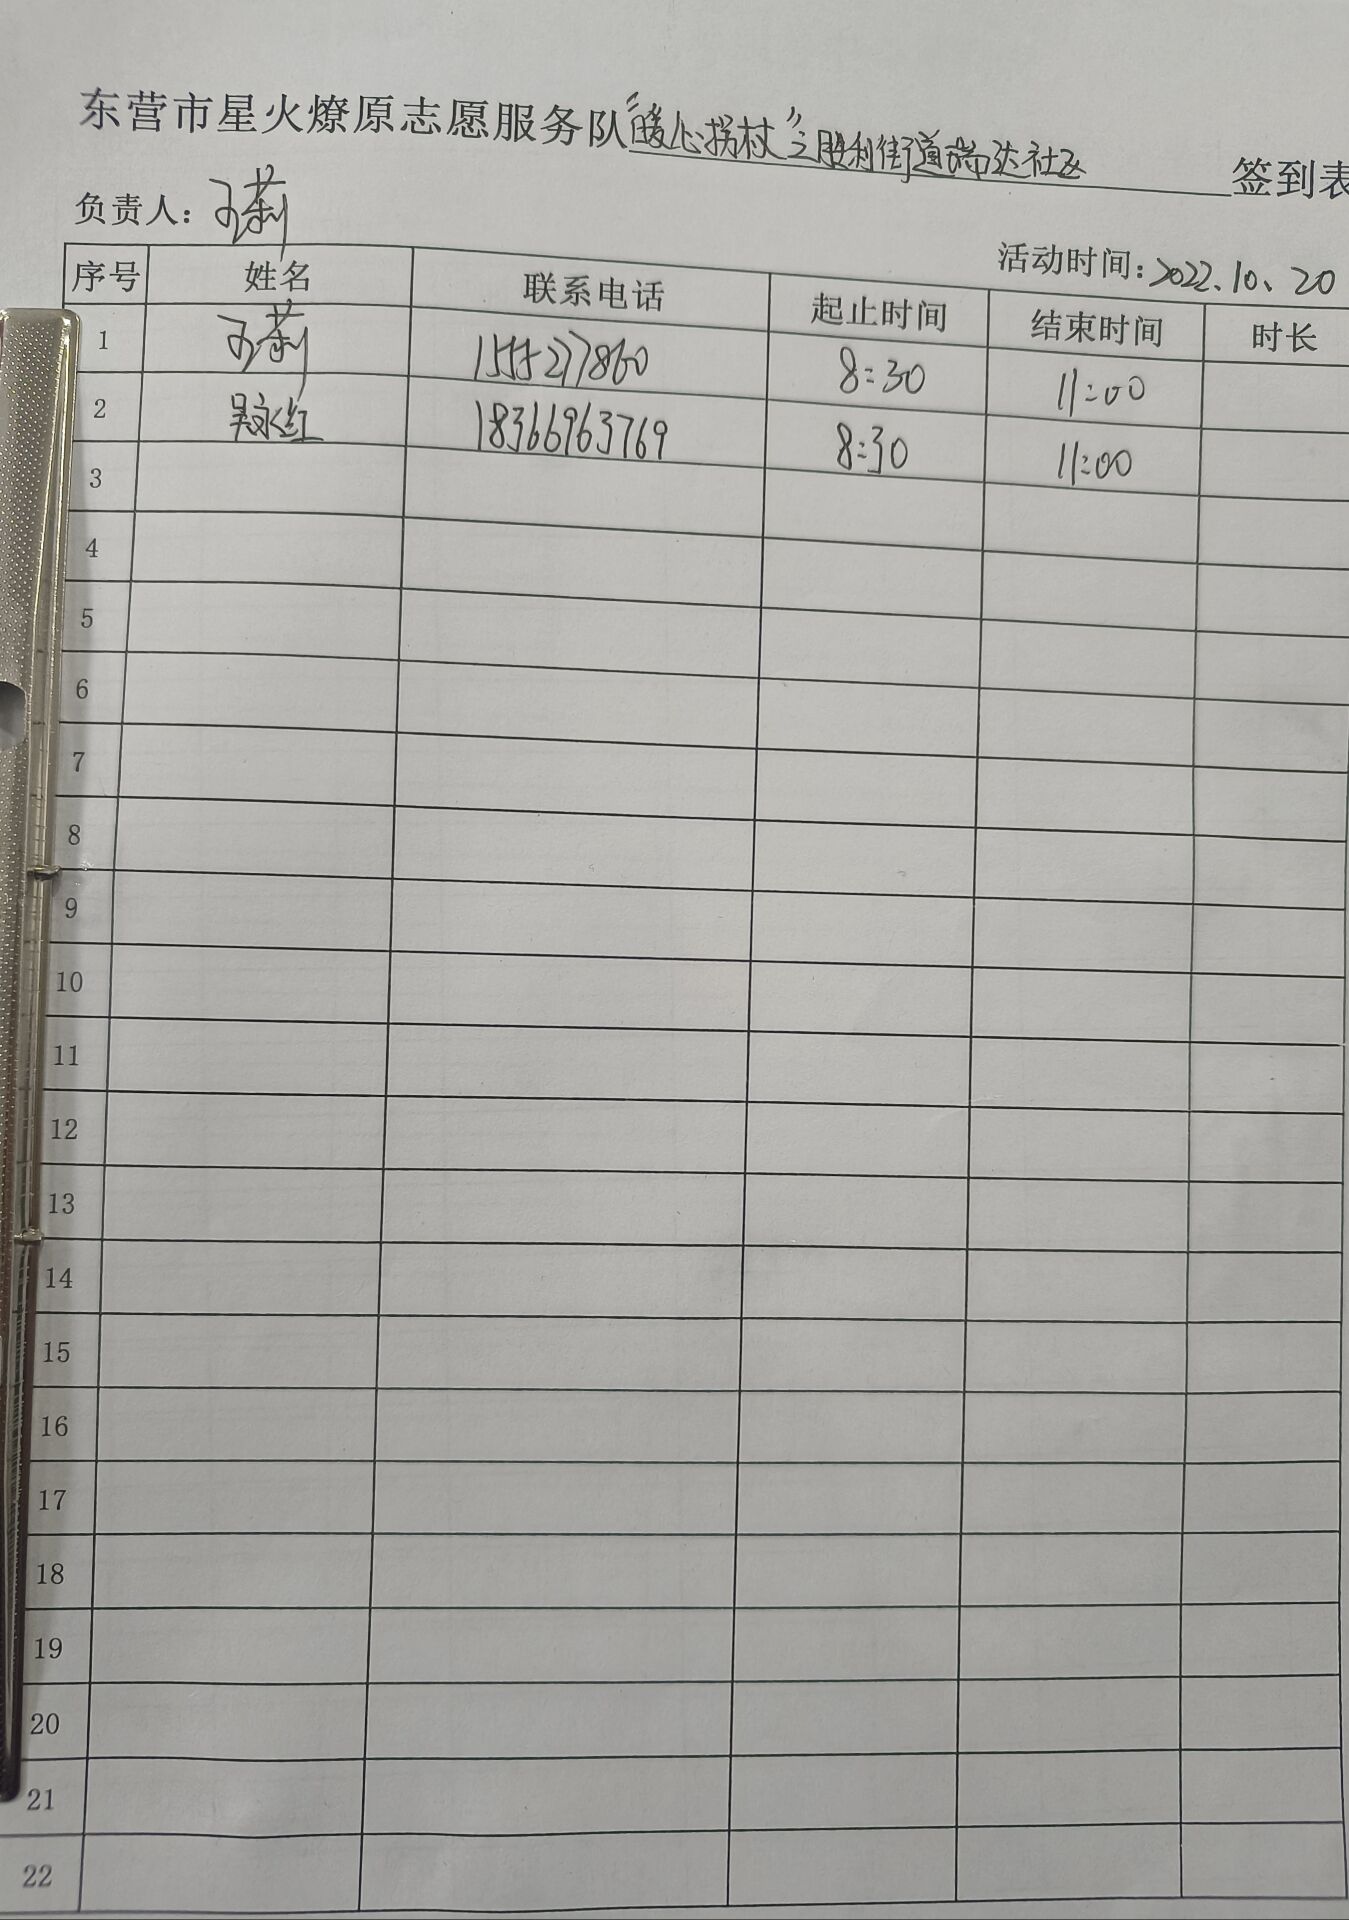 东营市星火燎原志愿服务队“暖心拐杖”之胜利街道瑞达社区签到表
负责人：王莉
活动时间：2022.10、20
序号 姓名 联系电话 起止时间 结束时间 时长
1 王莉 8:30 11:00
2 吴永红 18366963769 8:30 11:00
3
4
5
6
7
8
9
10
11
12
13
14
15
16
17
18
19
20
21
22